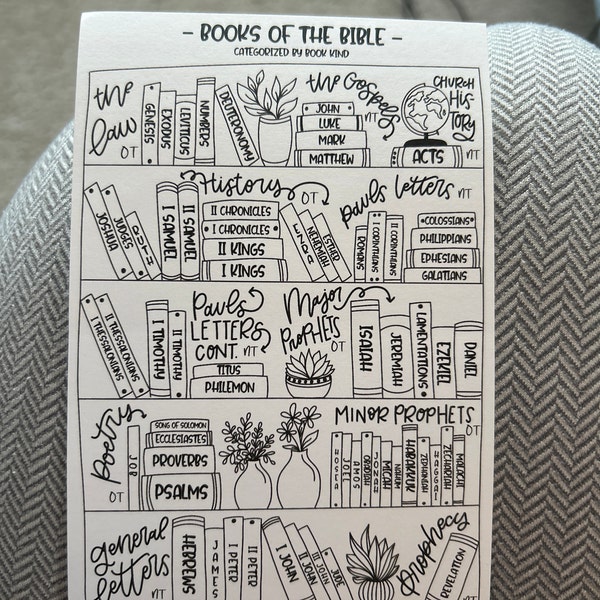 - BOOKS OF THE BIBLE -
CATEGORIZED BY BOOK KIND
the law
OT
GENESIS
EXODUS
LEVITICUS
NUMBERS
DEUTERONOMY
the Gospels
NT
JOHN
LUKE
MARK
MATTHEW
CHURCH HISTORY
ACTS
NT
JOSHUA
JUDGES
RUTH
I SAMUEL
II SAMUEL
History
OT
II CHRONICLES
I CHRONICLES
II KINGS
I KINGS
EZRA
NEHEMIAH
ESTHER
pauls letters NT
ROMANS
I CORINTHIANS
II CORINTHIANS
COLOSSIANS
PHILIPPIANS
EPHESIANS
GALATIANS
I THESSALONIANS
II THESSALONIANS
I TIMOTHY
II TIMOTHY
Pauls
LETTERS
CONT. NT
TITUS
PHILEMON
Major
PROPHETS
OT
ISAIAH
JEREMIAH
LAMENTATIONS
EZEKIEL
DANIEL
Poetry
OT
JOB
SONG OF SOLOMON
ECCLESIASTES
PROVERBS
PSALMS
MINOR PROPHETS
OT
HOSEA
JOEL
AMOS
OBADIAH
JONAH
MICAH
NAHUM
HABAKKUK
ZEPHANIAH
HAGGAI
ZECHARIAH
MALACHI
general
letters
NT
HEBREWS
JAMES
I PETER
II PETER
I JOHN
II JOHN
III JOHN
JUDE
prophecy
REVELATION
NT